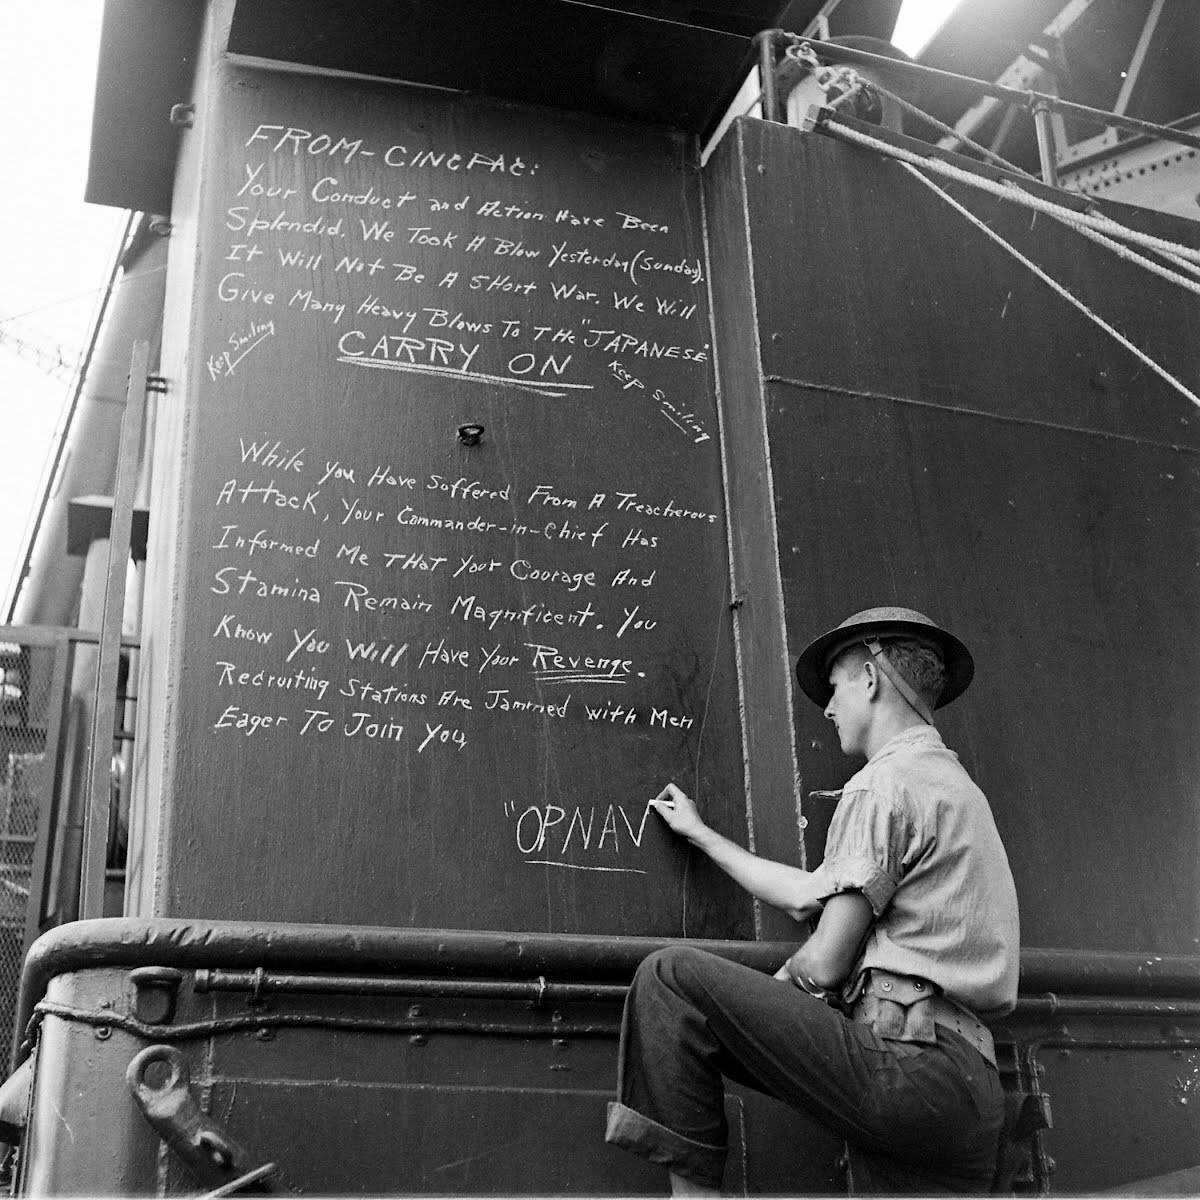 FROM-CINCPAC:
Your Conduct and Action Have Been
Splendid. We Took A Blow Yesterday (Sunday).
It Will Not Be A SHort War. We Will
Give Many Heavy Blows To THe "JAPANESE"
CARRY ON
Keep Smiling
Keep Smiling
While you Have Suffered From A Treacherous
Attack, Your Commander-in-Chief Has
Informed Me THat Your Courage And
Stamina Remain Magnificent. You
Know You Will Have Your Revenge.
Recruiting Stations Are Jammed with Men
Eager To Join You,
"OPNAV